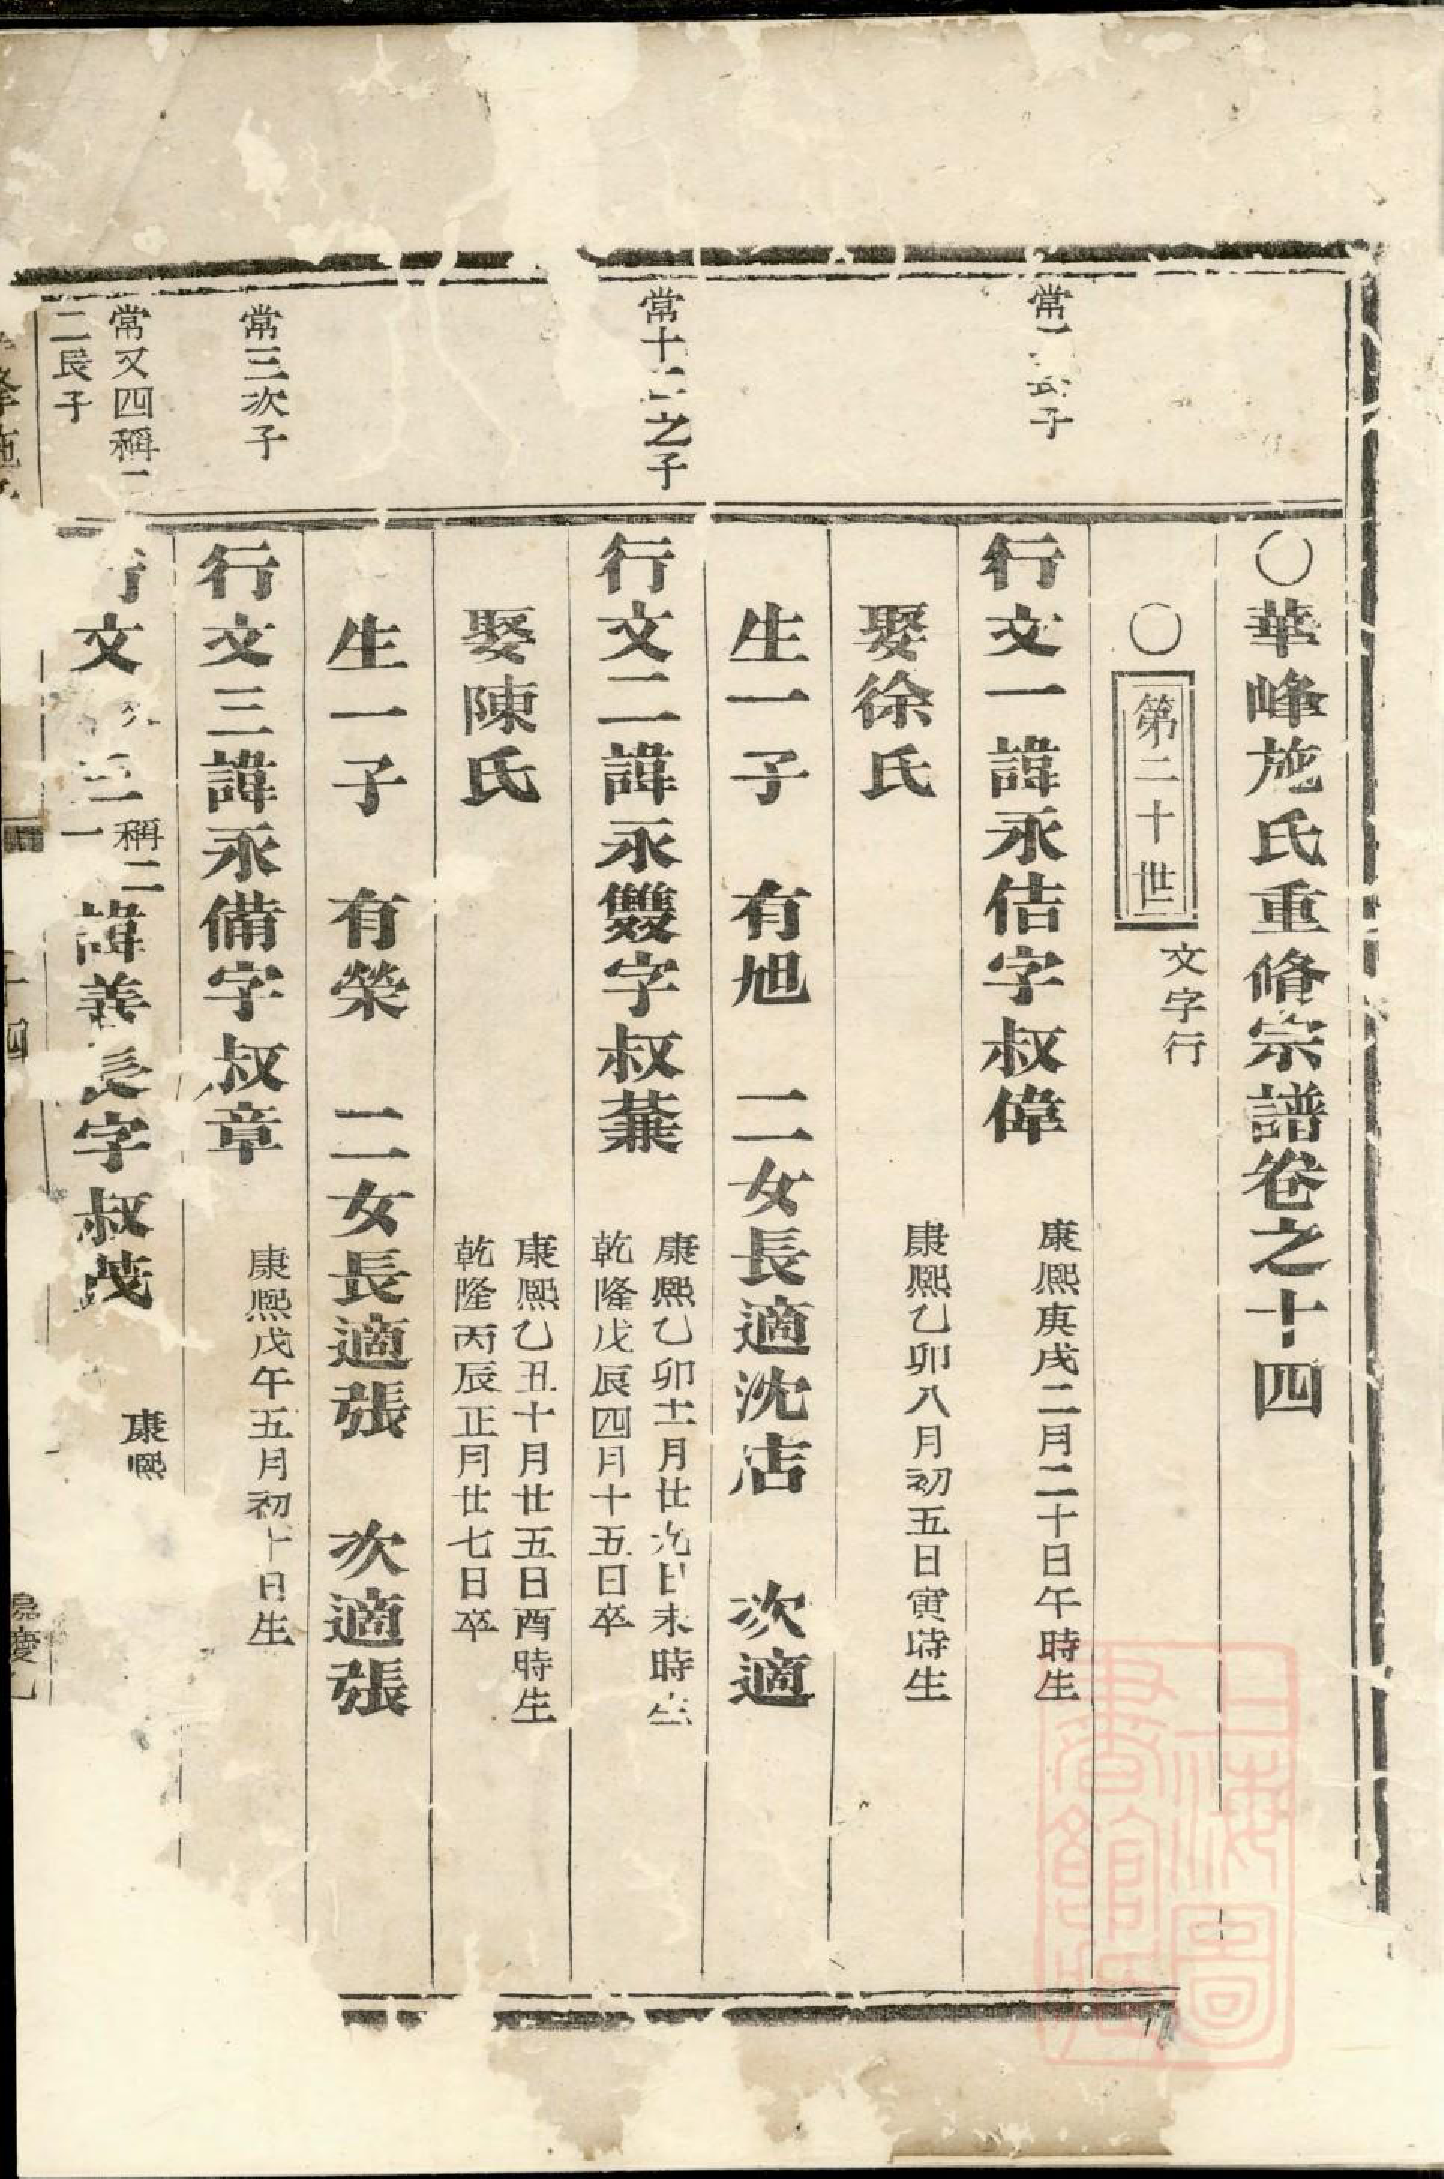 〇華峰施氏重脩宗譜卷之十四
〇第二十世
文字行
常子
行文一諱永佶字叔偉
康熙庚戌二月二十日午時生
娶徐氏
康熙乙卯八月初五日寅時生
生一子 有旭 二女長適沈店 次適
常十二之子
行文二諱永雙字叔蒹
康熙乙卯十一月廿九日未時生
乾隆戊辰四月十五日卒
娶陳氏
康熙乙丑十月廿五日酉時生
乾隆丙辰正月廿七日卒
生一子 有榮 二女長適張 次適張
常三次子
行文三諱永備字叔章
康熙戊午五月初十日生
常又四稱二
二長子
行文
稱二
諱善長字叔茂
康熙
峰施
十四
嘉慶
上海圖書館藏